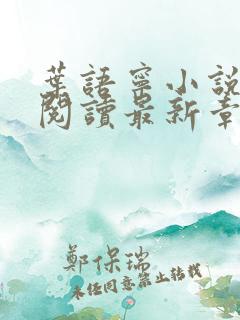 葉語寧小説
閱讀最新章
鄭保瑞
未經同意禁止轉載